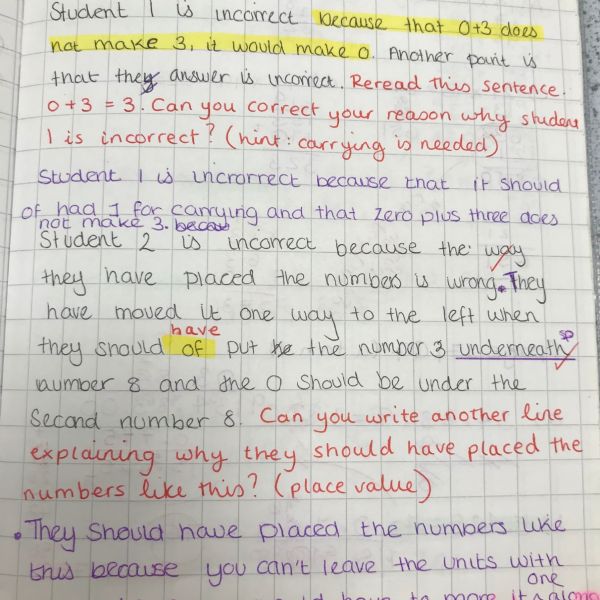 Student 1 is incorrect because that 0+3 does
not make 3, it would make 0. Another point is
that they answer is incorrect. Reread this sentence.
0+3 = 3. Can you correct your reason why student
1 is incorrect? (hint: carrying is needed)
Student 1 is incrorrect because that it should
of had 1 for carrying and that zero plus three does
not make 3. becaus
Student 2 is incorrect because the way
they have placed the numbers is wrong. They
have moved it one way to the left when
have
they should of put the the number 3 underneath sp
number 8 and the 0 should be under the
second number 8. Can you write another line
explaining why they should have placed the
numbers like this? (place value)
• They should have placed the numbers like
this because you can't leave the units with
one
have to move it along